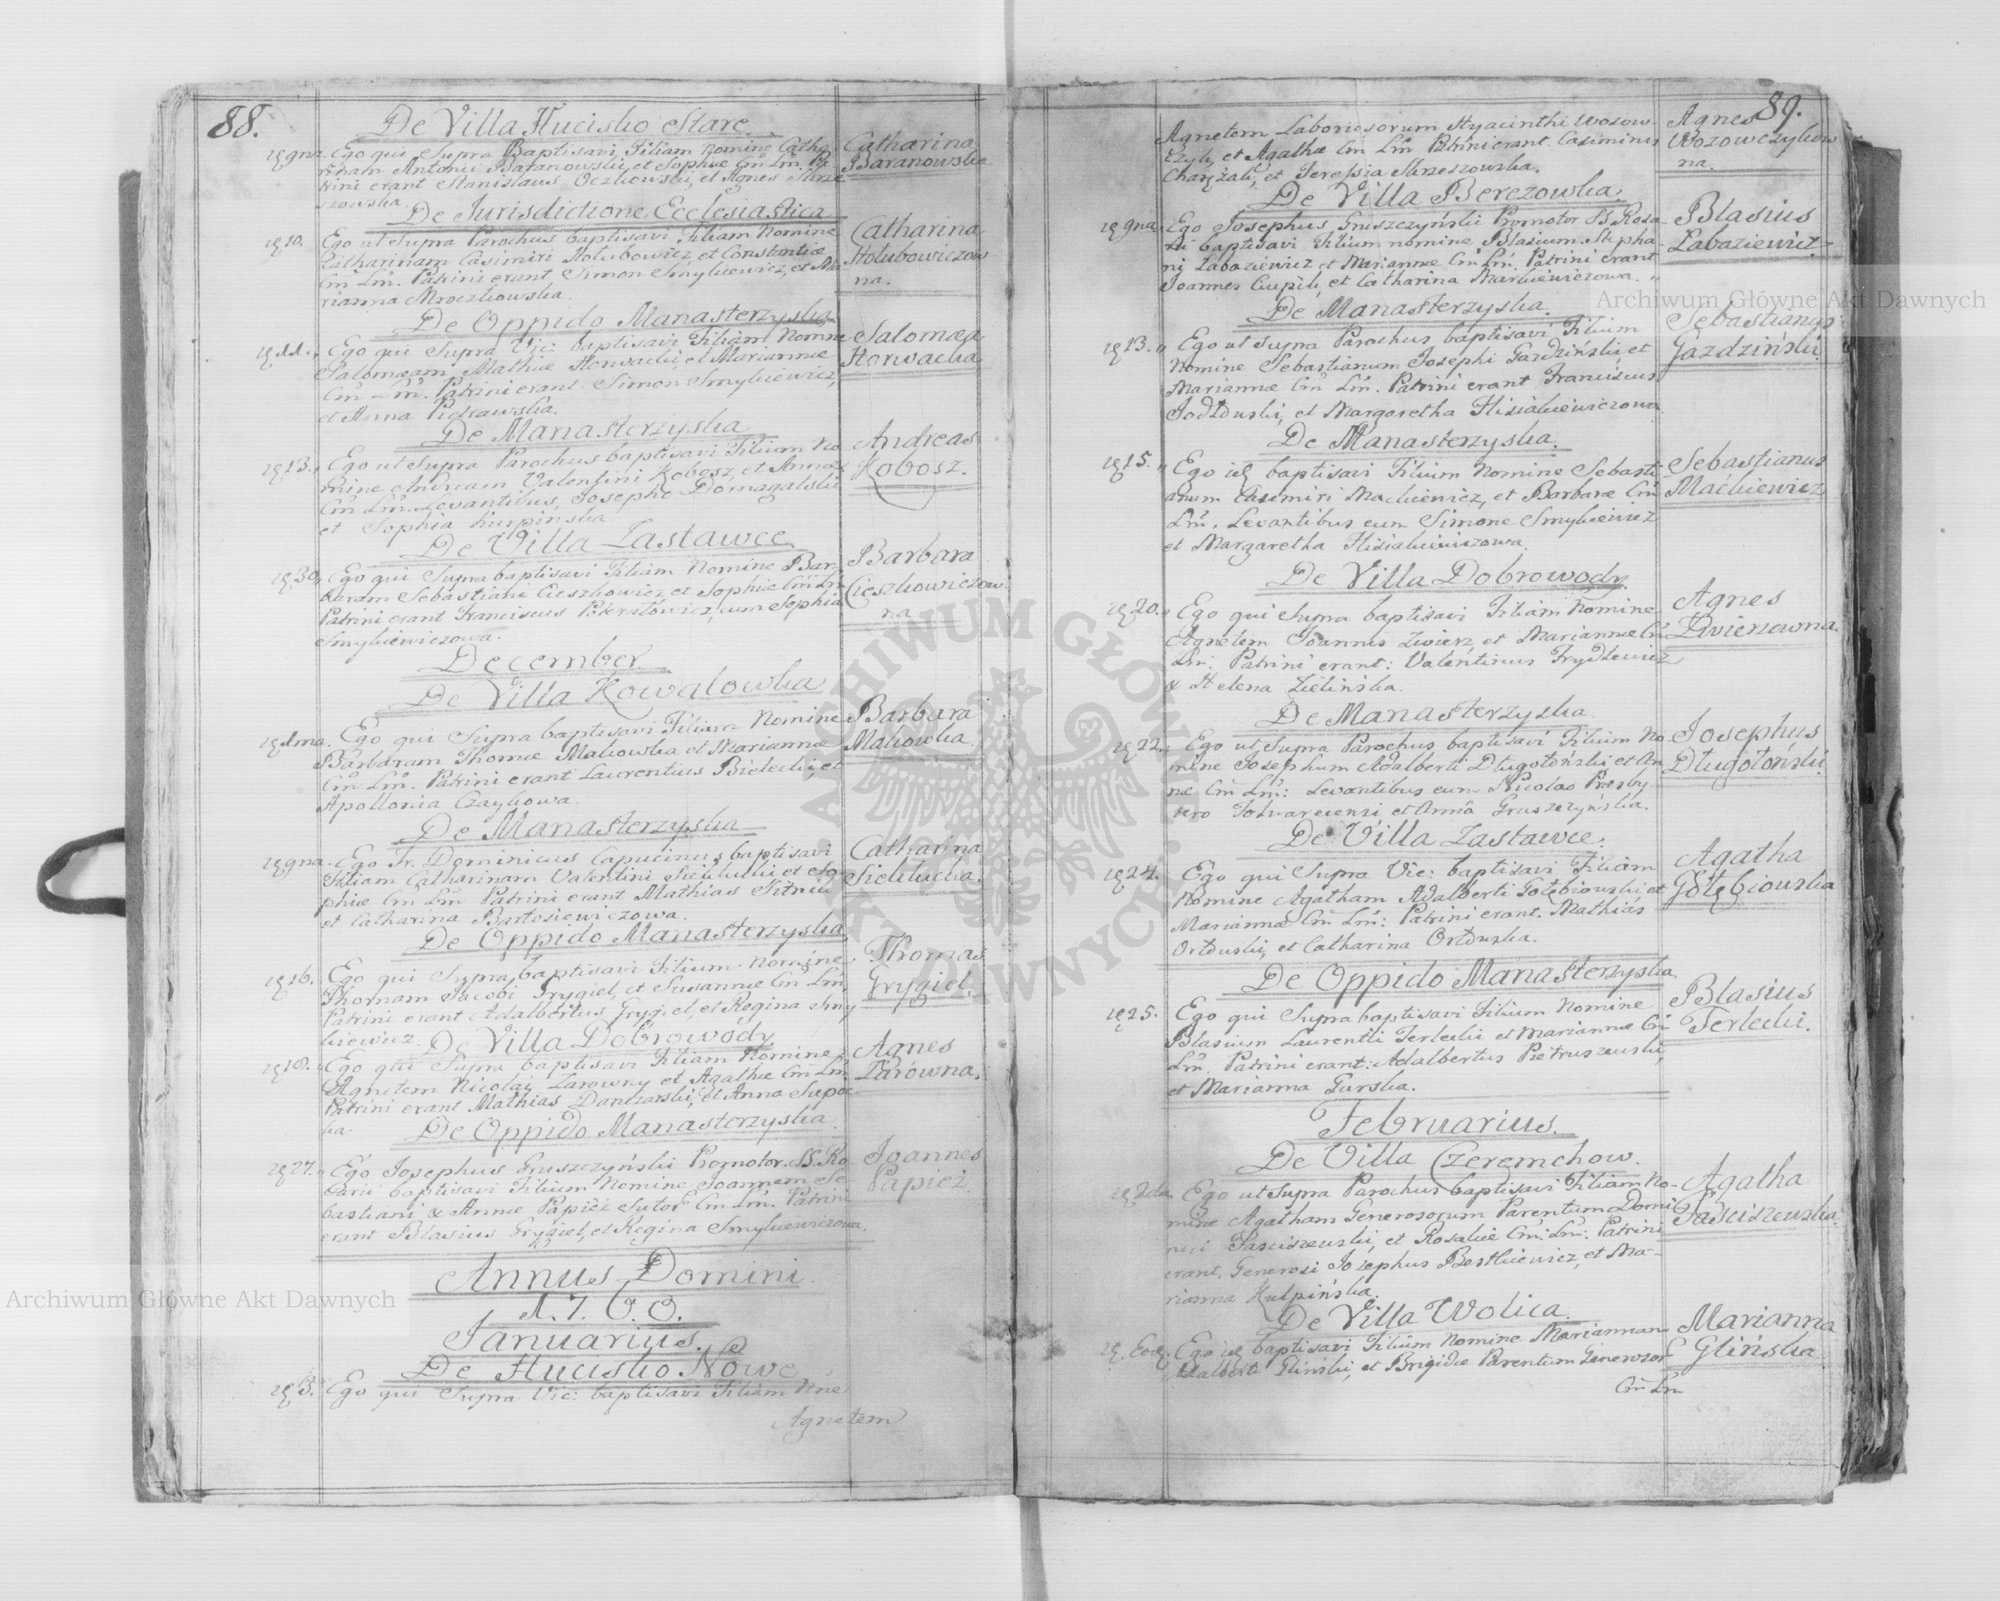 88.
De Villa Hucisko Stare
Ego qui Supra Baptisavi Filiam nomine Catha-
rinam Antonii Baranowski, et Sophiæ Cm̃ Lm̃ Pa-
trini erant Stanislaus Oczkowski, et Agnes
szowska.
Catharina
Baranowska
De Jurisdictione Ecclesiastica
10. Ego ut Supra Parochus baptisavi Filiam Nomine
Catharinam Casimiri Holubowicz, et Constantiæ
Cm̃ Lm̃. Patrini erant Simon Smykiewicz, et Ma-
rianna Mroczkowska.
Catharina
Holubowiczow
na.
De Oppido Manasterzyska
11. Ego qui Supra Vic: baptisavi Filiam Nomine
Salomeam Mathiæ Horwacki, et Mariannæ
Cm̃ Lm̃. Patrini erant Simon Smykiewicz,
et Anna
Salomea
Horwacka
De Manasterzyska
13. Ego ut Supra Parochus baptisavi Filium No
mine Andream Valentini Kobosz, et Annæ
Cm̃ Lm̃. Levantibus, Josepho Domagalski
et Sophia
Andreas
Kobosz.
De Villa Zastawce
30. Ego qui Supra baptisavi Filiam Nomine Bar-
baram Sebastiani Cieszkowicz et Sophiæ Cm̃ Lm̃
Patrini erant Franciscus cum Sophia
Smykiewiczowa.
Barbara
Cieszkowiczow
na
December
De Villa Kowalowka
1ma. Ego qui Supra baptisavi Filiam Nomine
Barbaram Thomæ Makowska et Mariannæ
Cm̃ Lm̃. Patrini erant Laurentius Bielecki, et
Apollonia Czaykowa.
Barbara
Makowka
De Manasterzyska
Ego Fr. Dominicus Capucinus baptisavi
Filiam Catharinam Valentini et So-
phiæ Cm̃ Lm̃ Patrini erant Mathias
et Catharina Bartosiewiczowa.
Catharina
De Oppido Manasterzyska
16. Ego qui Supra baptisavi Filium Nomine
Thomam Jacobi Grygiel, et Susannæ Cm̃ Lm̃,
Patrini erant Adalbertus Grygiel, et Regina Smy
kiewicz.
Thomas
Grygiel.
De Villa Dobrowody
18. Ego qui Supra baptisavi Filiam Nomine
Agnetem Nicolai Zarowny et Agathæ Cm̃ Lm̃
Patrini erant Mathias Danczarski, et Anna
ka.
Agnes
Zarowna.
De Oppido Manasterzyska
27. Ego Josephus Gruszczyński Promotor SS. Ro
sarii baptisavi Filium Nomine Joannem Se-
bastiani & Annæ Papież Sutor Cm̃ Lm̃. Patrini
erant Blasius Grygiel, et Regina Smykiewiczowa.
Joannes
Papież
Annus Domini
Januarius.
De Hucisko Nowe
Ego qui Supra Vic: baptisavi Filiam
Agnetem
89.
Agnetem Laboriosorum Hyacinthi Wozow-
czyk, et Agathæ Cm̃ Lm̃ Patrini erant Casimirus
et Teressia
Agnes
Wozowczykow
na.
De Villa Berezowka.
Ego Josephus Gruszczyński Promotor SS. Rosa-
rii baptisavi Filium nomine Blasium Stepha-
ni Labaziewicz et Mariannæ Cm̃ Lm̃. Patrini erant
Joannes et Catharina Markiewiczowa.
Blasius
Labaziewicz
De Manasterzyska.
13. Ego ut Supra Parochus baptisavi Filium
Nomine Sebastianum Josephi Gazdziński, et
Mariannæ Cm̃ Lm̃. Patrini erant Franciscus
et Margaretha Hisiakiewiczowa
Sebastianus
Gazdziński
De Manasterzyska.
15. Ego baptisavi Filium Nomine Sebasti-
anum Casimiri Mackiewicz, et Barbaræ Cm̃
Lm̃. Levantibus eum Simone Smykiewicz
et Margaretha Hisiakiewiczowa.
Sebastianus
Mackiewicz
De Villa Dobrowody
20. Ego qui Supra baptisavi Filiam Nomine
Agnetem Joannis Zwierz, et Mariannæ Cm̃
Lm̃: Patrini erant: Valentinus
& Helena Zielińska.
Agnes
Zwierzowna.
De Manasterzyska
22. Ego ut Supra Parochus baptisavi Filium No-
mine Josephum Adalberti Długołoński et An-
næ Cm̃ Lm̃: Levantibus eum Nicolao Presby-
tero et Anna Gruszczyńska.
Josephus
Długołoński
De Villa Zastawce.
24. Ego qui Supra Vic: baptisavi Filiam
Nomine Agatham Adalberti Gołębiowski et
Mariannæ Cm̃ Lm̃: Patrini erant. Mathias
Ortowski, et Catharina
Agatha
Gołębiowska
De Oppido Manasterzyska
25. Ego qui Supra baptisavi Filium Nomine
Blasium Laurentii Terlecki et Mariannæ Cm̃
Lm̃. Patrini erant: Adalbertus Pietruszewski,
et Marianna Gurska.
Blasius
Terlecki.
Februarius.
De Villa Czeremchow.
2da. Ego ut Supra Parochus baptisavi Filiam No-
mine Agatham Generosorum Parentum Domi
nici et Rosaliæ Cm̃: Lm̃: Patrini
erant, Generosi Josephus et Ma-
rianna Kulpińska.
Agatha
De Villa Wolica
Ego baptisavi Filium Nomine Mariannam
Adalberti Gliński, et Brigidæ Parentum Generosor
Cm̃ Lm̃
Marianna
Glińska
Archiwum Główne Akt Dawnych
Archiwum Główne Akt Dawnych
ARCHIWUM GŁÓWNE AKT DAWNYCH